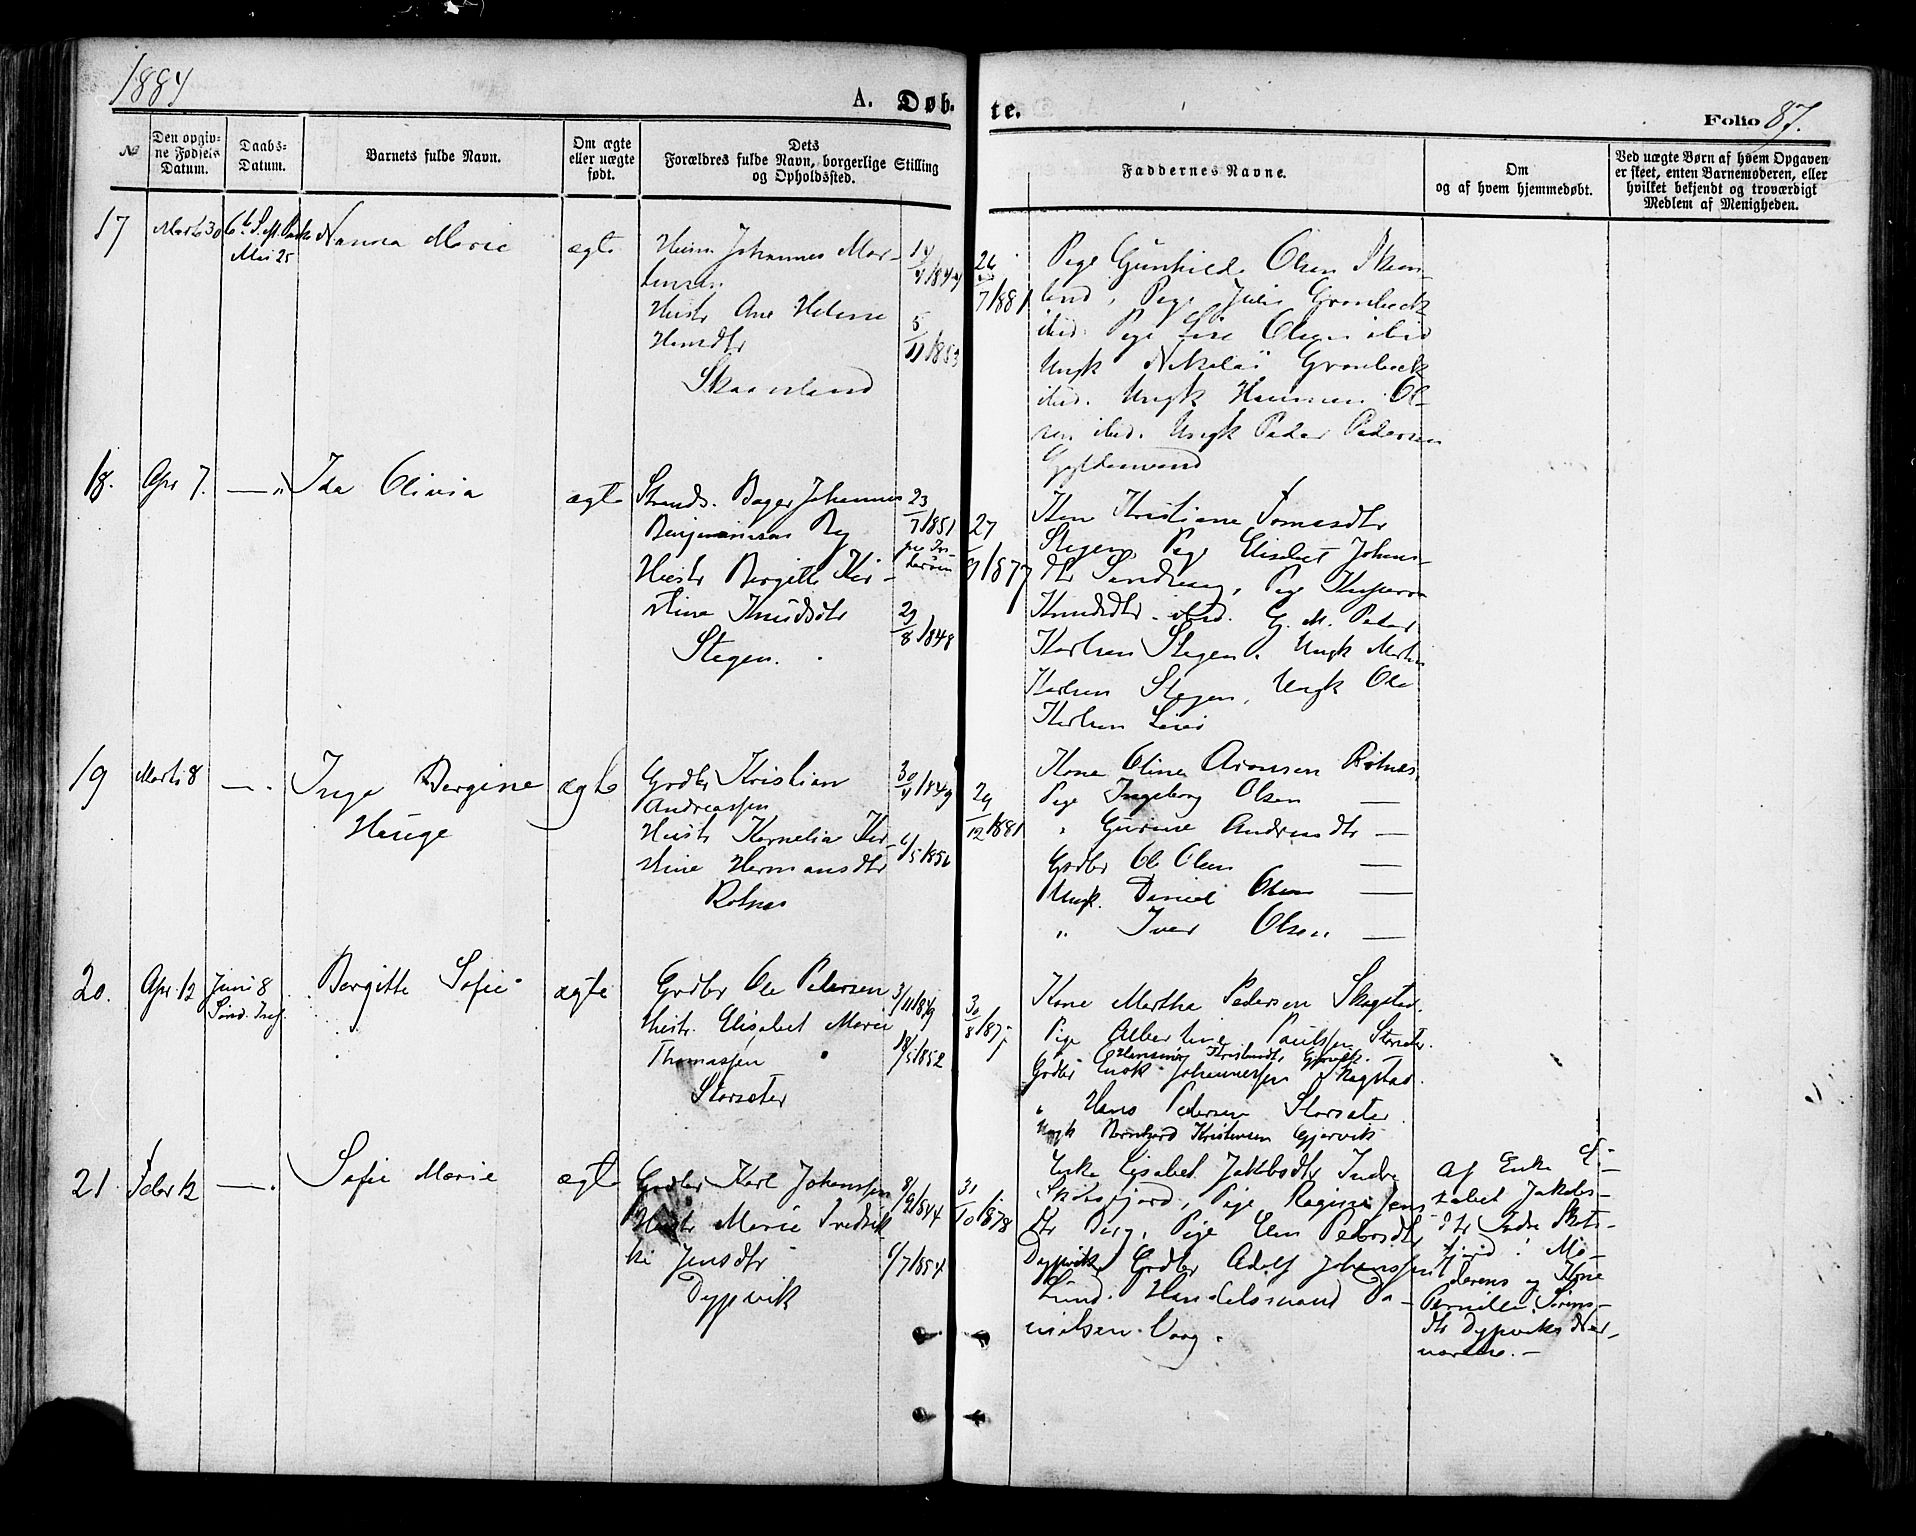 1884
A. Døb- te.
Folio 87.
№
Den opgiv-
ne Fødsels
Datum.
Daabs-
Datum.
Barnets fulde Navn.
Om ægte
eller uægte
født.
Dets
Forældres fulde Navn, borgerlige Stilling
og Opholdssted.
Faddernes Navne.
Om
og af hvem hjemmedøbt.
Ved uægte Børn af hvem Opgaven
er skeet, enten Barnemoderen, eller
hvilket bekjendt og troværdigt
Medlem af Menigheden.
17
Marts 30
6te S. ef. Paaske
Mai 25
Nanna Marie
ægte
Huusm Johannes Mor-
tensen
Hustr Ane Helene
Hansdtr
Skaanland
14/4 1844
5/11 1853
26/7 1881
Pige Gunhilde Olsen Skaan-
land, Pige Julie Grønbeck
ibid. Pige Lise Olsen ibid
Ungk Nikolai Grønbeck
ibid. Ungk Ol-
sen ibid. Ungk Peder Pedersen
18.
Apr 7.
— "
Ida Olivia
ægte
Strands. Bager Johannes
Benjaminsen By
Hustr Bergitte Kir-
stine Knudsdtr
Stegen.
23/7 1851
29/8 1848
27/9 1877
Kone Kristiane Tomasdtr
Stegen, Pige Elisabet Johans-
dtr Sandvaag, Pige
Knudsdtr ibid. G. M. Peder
Karlsen Stegen. Ungk Martin
Karlsen Stegen, Ungk Ole
Karlsen
19
Marts 8
— .
Inga Bergine
Hauge
ægte
Grdbr Kristian
Andreassen
Hustr Kornelia Kir-
stine Hermansdtr
Rotnes
30/4 1849
6/5 1856
29/12 1881
Kone Oline Aronsen Rotnes.
Pige Ingeborg Olsen —
" Gurine Andreasdtr —
Grdbr Ole Olsen —
Ungk. Daniel Olsen —
" Iver Olsen —
20.
Apr. 12
Juni 8
Sønd. Tref.
Bergitte Sofie
ægte
Grdbr Ole Pedersen
Hustr. Elisabet Marie
Thomassen
Storsæter
3/11 1849
18/5 1852
30/8 1875
Kone Martha Pedersen Skogstad.
Pige Albertine Paulssen Storsæter.
Hansine Kristiansdtr, Gjærvik.
Grdbr Enok Johannessen Skogstad.
" Hans Pedersen Storsæter.
Ungk Bernhard Kristensen Gjærvik
21
Febr 12
— .
Sofie Marie
ægte
Grdbr Karl Johanssen
Hustr Marie Fredrik-
ke Jensdtr
Dypvik
8/9 1844
6/7 1854
31/10 1878
Enke Lisabet Jakobsdtr Indre
Skotsfjord, Pige Regine Jens-
dtr Berg, Pige Elen Pedersdtr
Dypvik, Grdbr Adolf Johanssen
Lund. Handelsmand Da-
nielsen. Vaag.
af Enke E-
lisabet Jakobs-
dtr Indre Skots-
fjord i Mo-
derens og Kone
Pernille Sørens-
dtr Dypviks Nær-
værelse. —